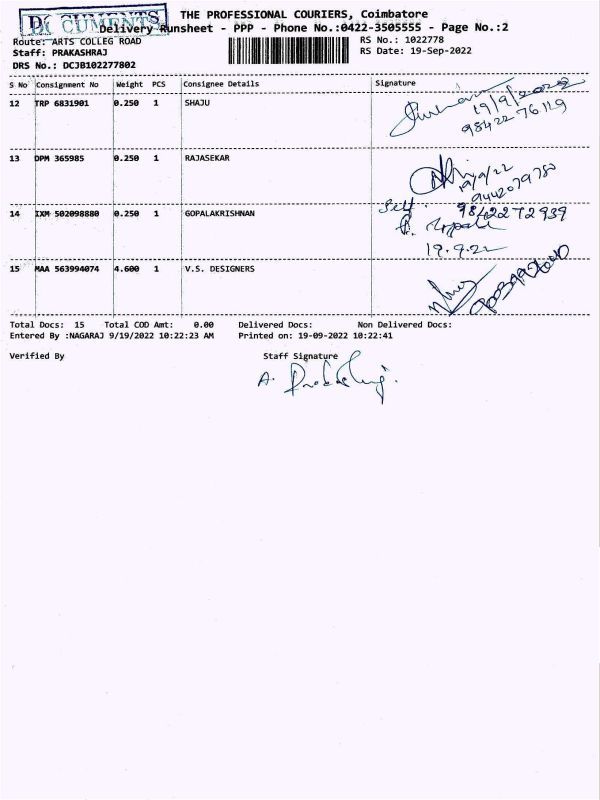 DOCUMENTS
THE PROFESSIONAL COURIERS, Coimbatore
Delivery Runsheet - PPP - Phone No.:0422-3505555 - Page No.:2
Route: ARTS COLLEG ROAD
RS No.: 1022778
Staff: PRAKASHRAJ
RS Date: 19-Sep-2022
DRS No.: DCJB102277802
S No Consignment No Weight PCS Consignee Details Signature
12 TRP 6831901 0.250 1 SHAJU
19/9/2022
98422 76119
13 DPM 365985 0.250 1 RAJASEKAR
19/9/22
9442079780
Self.
9842272939
14 IXM 502098880 0.250 1 GOPALAKRISHNAN
19.9.22
15 MAA 563994074 4.600 1 V.S. DESIGNERS
Total Docs: 15 Total COD Amt: 0.00 Delivered Docs: Non Delivered Docs:
Entered By :NAGARAJ 9/19/2022 10:22:23 AM Printed on: 19-09-2022 10:22:41
Verified By Staff Signature
A.